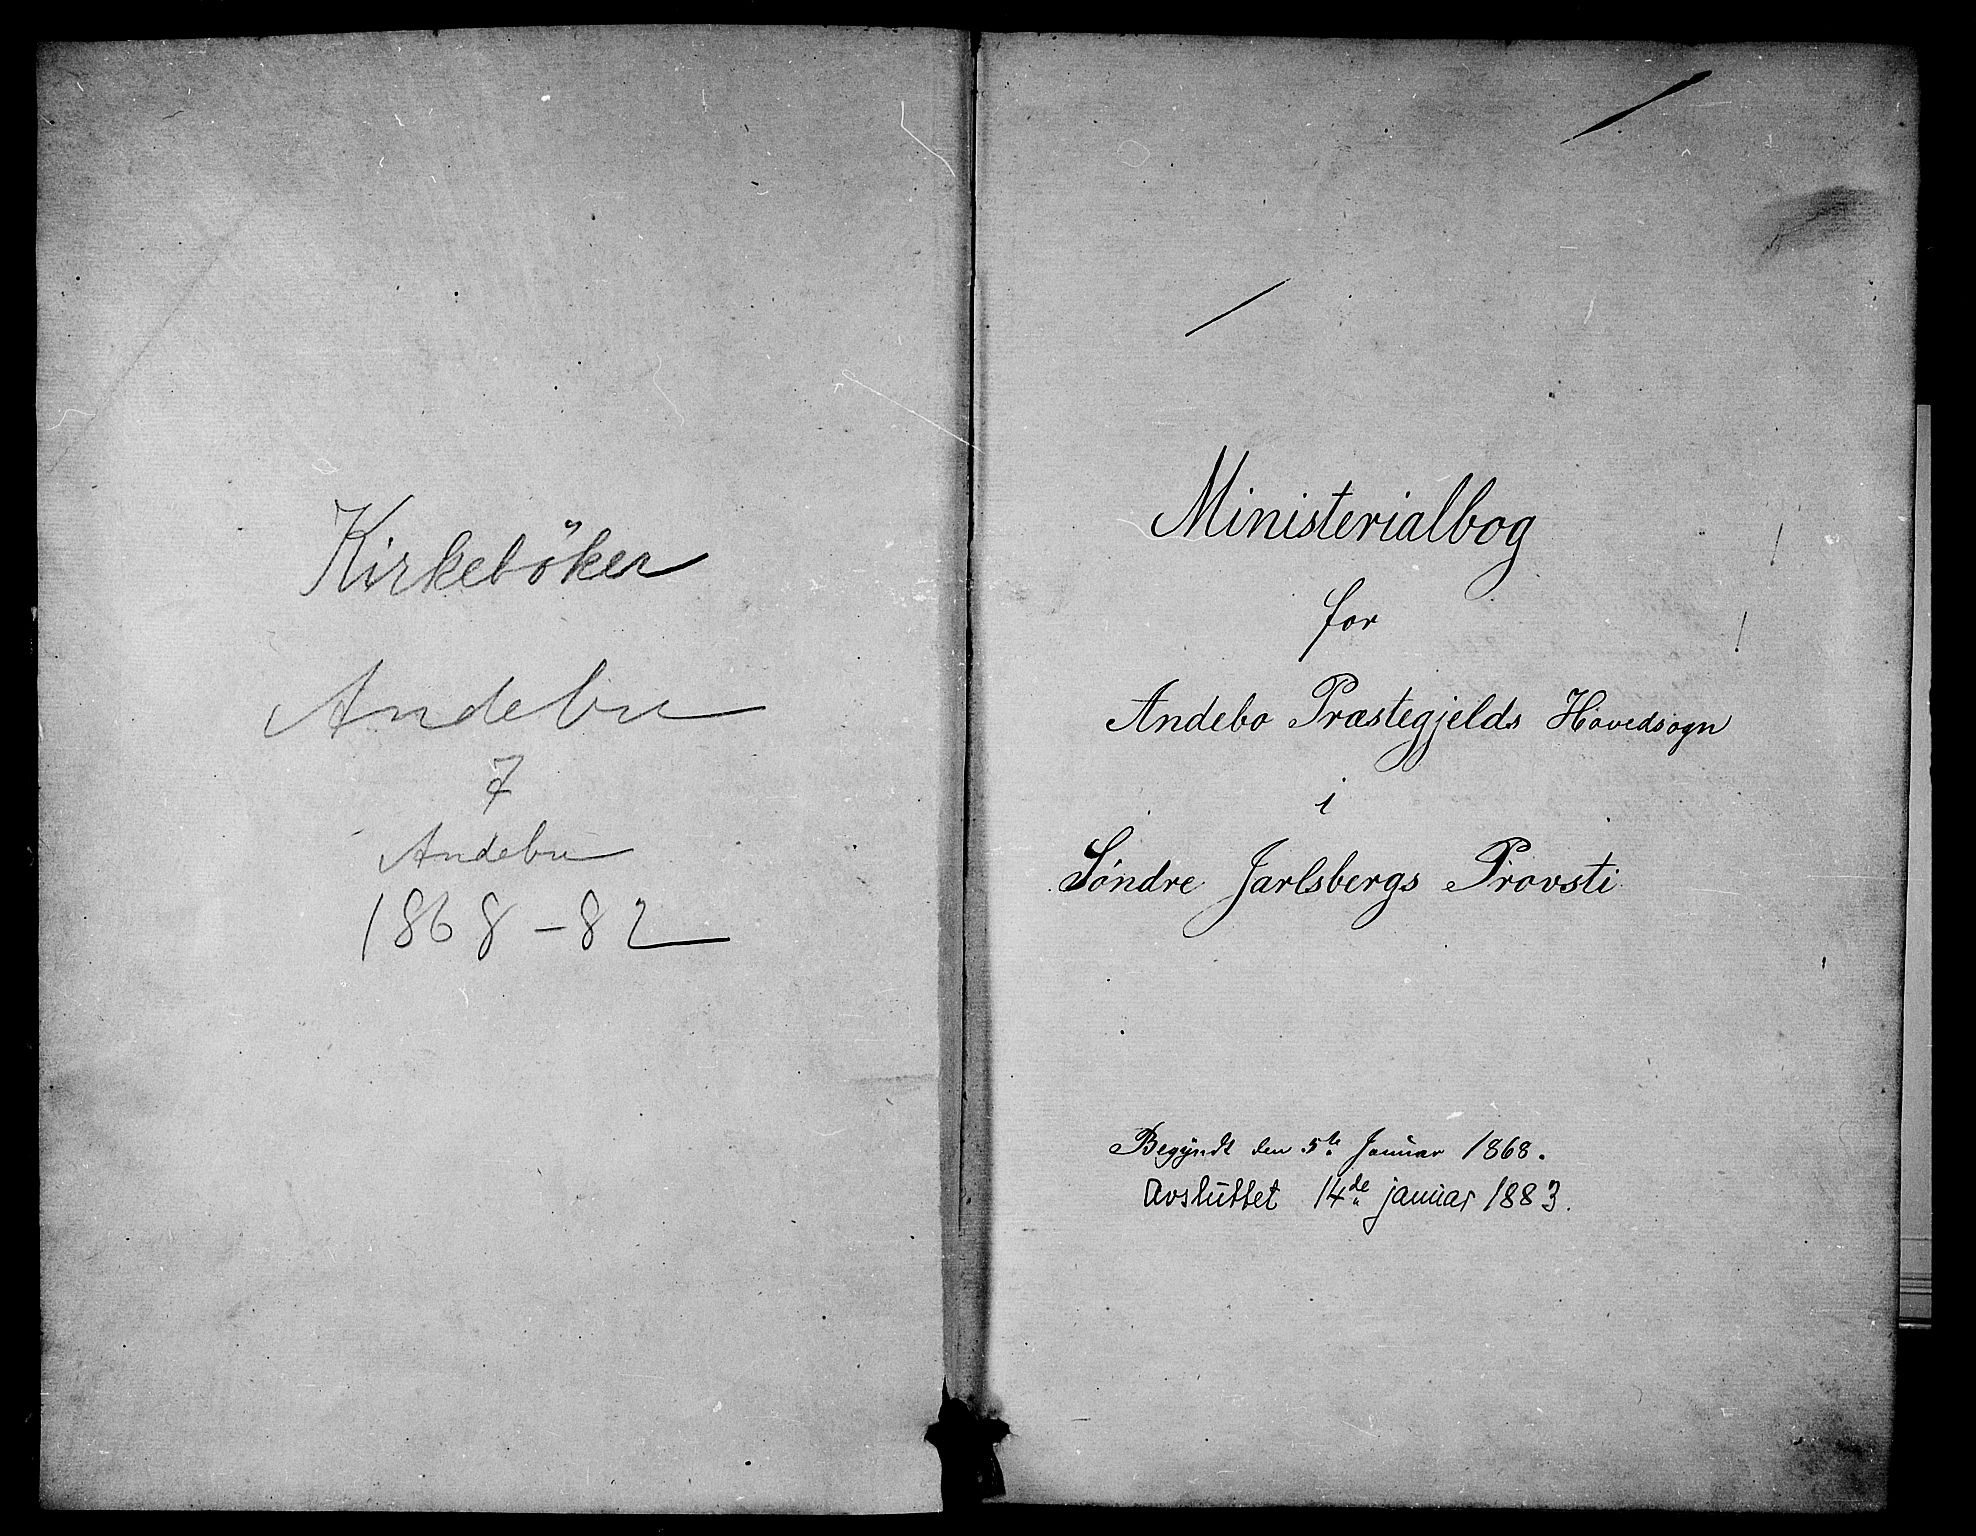 Kirkeböker
Andebu
7
Andebu
1868-82
Ministerialbog
for
Andebo Præstegjelds Hovedsogn
i
Søndre Jarlsbergs Provsti
Begyndt den 5te Januar 1868.
Avsluttet 14de januar 1883.